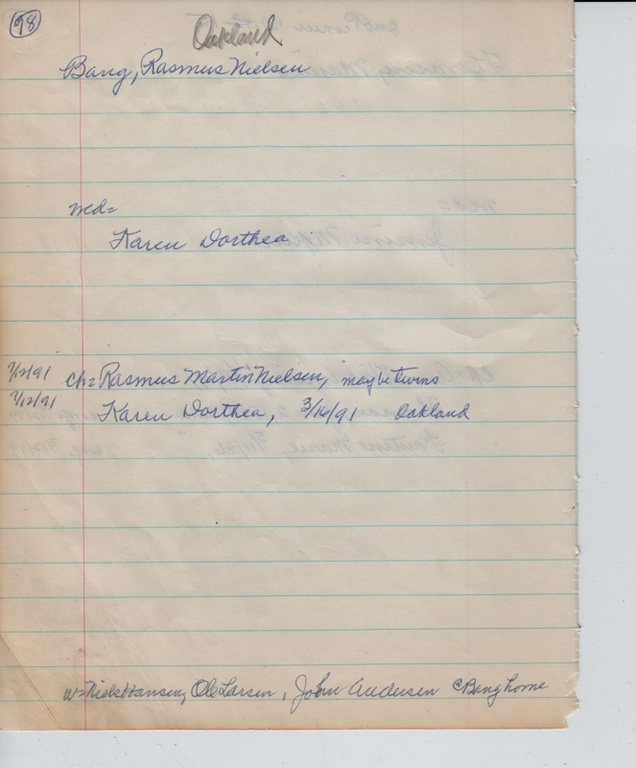 98
Oakland
Bang, Rasmus Nielsen
md=
Karen Dorthea
7/12/91 ch= Rasmus Martin Nielsen, maybe twins
7/12/91 Karen Dorthea, 3/14/91 Oakland
w= Niels Hansen, Ole Larsen, John Andersen @ Bang home